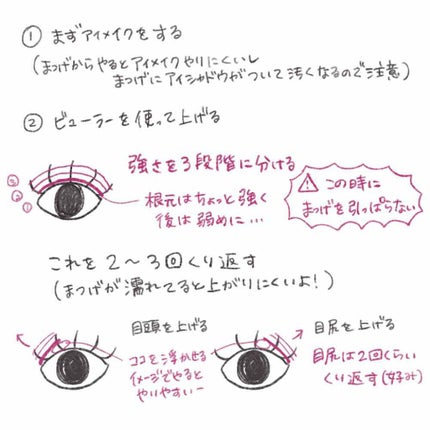 ① まずアイメイクをする
(まつげからやるとアイメイクやりにくいし
まつげにアイシャドウがついて汚くなるので注意)
② ビューラーを使って上げる
強さを3段階に分ける
③
②
①
根元はちょっと強く
後は弱めに…
⚠ この時に
まつげを引っぱらない
これを2〜3回くり返す
(まつげが濡れてると上がりにくいよ!)
目頭を上げる
ココを浮かせる
イメージでやると
やりやすいー
目尻を上げる
目尻は2回くらい
くり返す(好み)